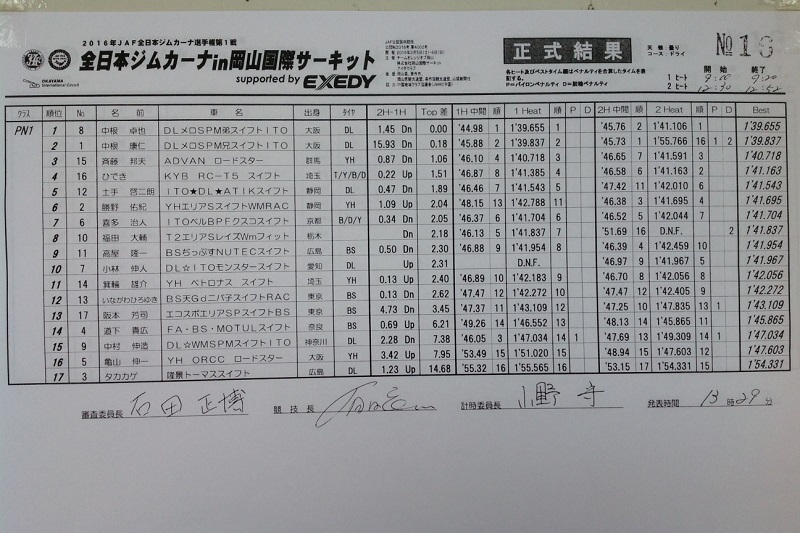 2016年JAF全日本ジムカーナ選手権第1戦
全日本ジムカーナin岡山国際サーキット
supported by EXEDY
正式結果
No 16
天候：曇り
コース：ドライ
各ヒート及びベストタイム欄はペナルティを合算したタイムを表記する。
P＝パイロンペナルティ D＝脱輪ペナルティ
開始 終了
1 ヒート 9:00 9:20
2 ヒート 12:30 12:52
クラス 順位 No 名前 車名 出身 タイヤ 2H-1H Top差 1H中間 順 1 Heat 順 P D 2H中間 順 2 Heat 順 P D Best
PN1 1 8 中根 卓也 DLメロスPM弟スイフトITO 大阪 DL 1.45 Dn 0.00 '44.98 1 1'39.655 1 '45.76 2 1'41.106 1 1'39.655
2 1 中根 康仁 DLメロスPM兄スイフトITO 大阪 DL 15.93 Dn 0.18 '45.88 2 1'39.837 2 '45.73 1 1'55.766 16 1 2 1'39.837
3 15 斉藤 邦夫 ADVAN ロードスター 群馬 YH 0.87 Dn 1.06 '46.10 4 1'40.718 3 '46.65 7 1'41.591 3 1'40.718
4 16 ひでき KYB RC-T5 スイフト 埼玉 T/Y/B/D 0.22 Up 1.51 '46.87 8 1'41.385 4 '46.58 6 1'41.163 2 1'41.163
5 12 土手 啓二朗 ITO★DL★ATIKスイフト 静岡 DL 0.47 Dn 1.89 '46.46 7 1'41.543 5 '47.42 11 1'42.010 6 1'41.543
6 2 勝野 佑紀 YHエリアSスイフトWMRAC 静岡 YH 1.09 Up 2.04 '48.15 13 1'42.788 11 '46.38 3 1'41.695 4 1'41.695
7 6 喜多 治人 ITOベルBPFクスコスイフト 京都 B/D/Y 0.34 Dn 2.05 '46.37 6 1'41.704 6 '46.52 5 1'42.044 7 1'41.704
8 10 福田 大輔 T2エリアSレイズWmフィット 栃木 Dn 2.18 '46.13 5 1'41.837 7 '51.69 16 D.N.F. 2 1'41.837
9 11 高屋 隆一 BSぢっぷすNUTECスイフト 広島 BS 0.50 Dn 2.30 '46.88 9 1'41.954 8 '46.39 4 1'42.459 10 1'41.954
10 7 小林 伸人 DL☆ITOモンスタースイフト 愛知 DL Up 2.31 D.N.F. '46.97 9 1'41.967 5 1'41.967
11 14 箕輪 雄介 YH ペトロナス スイフト 埼玉 YH 0.13 Up 2.40 '46.89 10 1'42.183 9 '46.70 8 1'42.056 8 1'42.056
12 13 いながわひろゆき BS天Gdニパ子スイフトRAC 東京 BS 0.13 Dn 2.62 '47.47 12 1'42.272 10 '47.47 12 1'42.405 9 1'42.272
13 17 阪本 芳司 エコスポエリアSPスイフトBS 東京 BS 4.73 Dn 3.45 '47.37 11 1'43.109 12 '47.25 10 1'47.835 13 1 1'43.109
14 4 道下 貴広 FA・BS・MOTULスイフト 奈良 BS 0.69 Up 6.21 '49.26 14 1'46.552 13 '48.13 14 1'45.865 11 1'45.865
15 9 中村 伸浩 DL☆WMSPMスイフトITO 神奈川 DL 2.28 Dn 7.38 '46.05 3 1'47.034 14 P '47.69 13 1'49.309 14 1 1'47.034
16 5 亀山 伸一 YH ORCC ロードスター 大阪 YH 3.42 Up 7.95 '53.49 15 1'51.020 15 '48.94 15 1'47.603 12 1'47.603
17 3 タカカゲ 隆景トーマススイフト 広島 DL 1.23 Up 14.68 '55.32 16 1'55.565 16 '53.15 17 1'54.331 15 1'54.331
審査委員長 石田 正博 競技長 計時委員長 小野 守 発表時間 13時29分